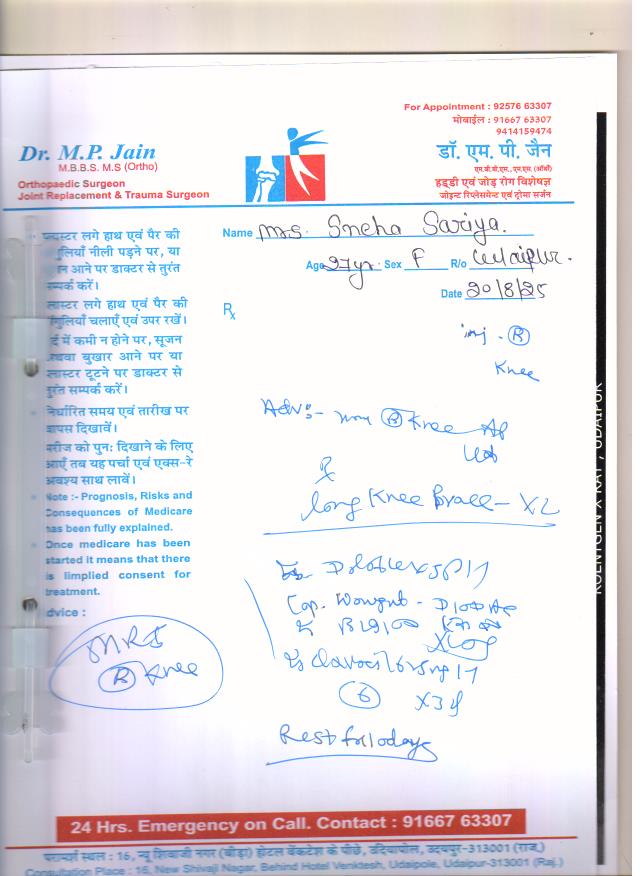 For Appointment : 92576 63307
मोबाईल : 91667 63307
9414159474
Dr. M.P. Jain
M.B.B.S. M.S (Ortho)
Orthopaedic Surgeon
Joint Replacement & Trauma Surgeon
डॉ. एम. पी. जैन
एम.बी.बी.एस., एम.एस. (ऑर्थो)
हड्डी एवं जोड़ रोग विशेषज्ञ
जोइन्ट रिप्लेसमेन्ट एवं ट्रोमा सर्जन
Name Mrs. Sneha Sariya.
Age 27yr. Sex F R/o Udaipur.
Date 20/8/25
प्लास्टर लगे हाथ एवं पैर की
गुलियाँ नीली पड़ने पर, या
न आने पर डाक्टर से तुरंत
म्पर्क करें।
लास्टर लगे हाथ एवं पैर की
गुलियाँ चलाएँ एवं उपर रखें।
र्द में कमी न होने पर, सूजन
थवा बुखार आने पर या
लास्टर टूटने पर डाक्टर से
तुरंत सम्पर्क करें।
निर्धारित समय एवं तारीख पर
वापस दिखावें।
मरीज को पुन: दिखाने के लिए
आएँ तब यह पर्चा एवं एक्स-रे
अवश्य साथ लावें।
Note :- Prognosis, Risks and
Consequences of Medicare
has been fully explained.
Once medicare has been
started it means that there
is limplied consent for
treatment.
dvice :
MRI
(B) Knee
Rx
inj. (B)
Knee
Adv:- (B) Knee AP
Rx
long Knee Brace - X2
Cap.
X3
(6)
Rest for 10 days
ROENTGEN X RAY, UDAIPUR
24 Hrs. Emergency on Call. Contact : 91667 63307
परामर्श स्थल : 16, न्यू शिवाजी नगर (बीड़ा) होटल वेंकटेश के पीछे, उदियापोल, उदयपुर-313001 (राज.)
Consultation Place : 16, New Shivaji Nagar, Behind Hotel Venktesh, Udaipole, Udaipur-313001 (Raj.)